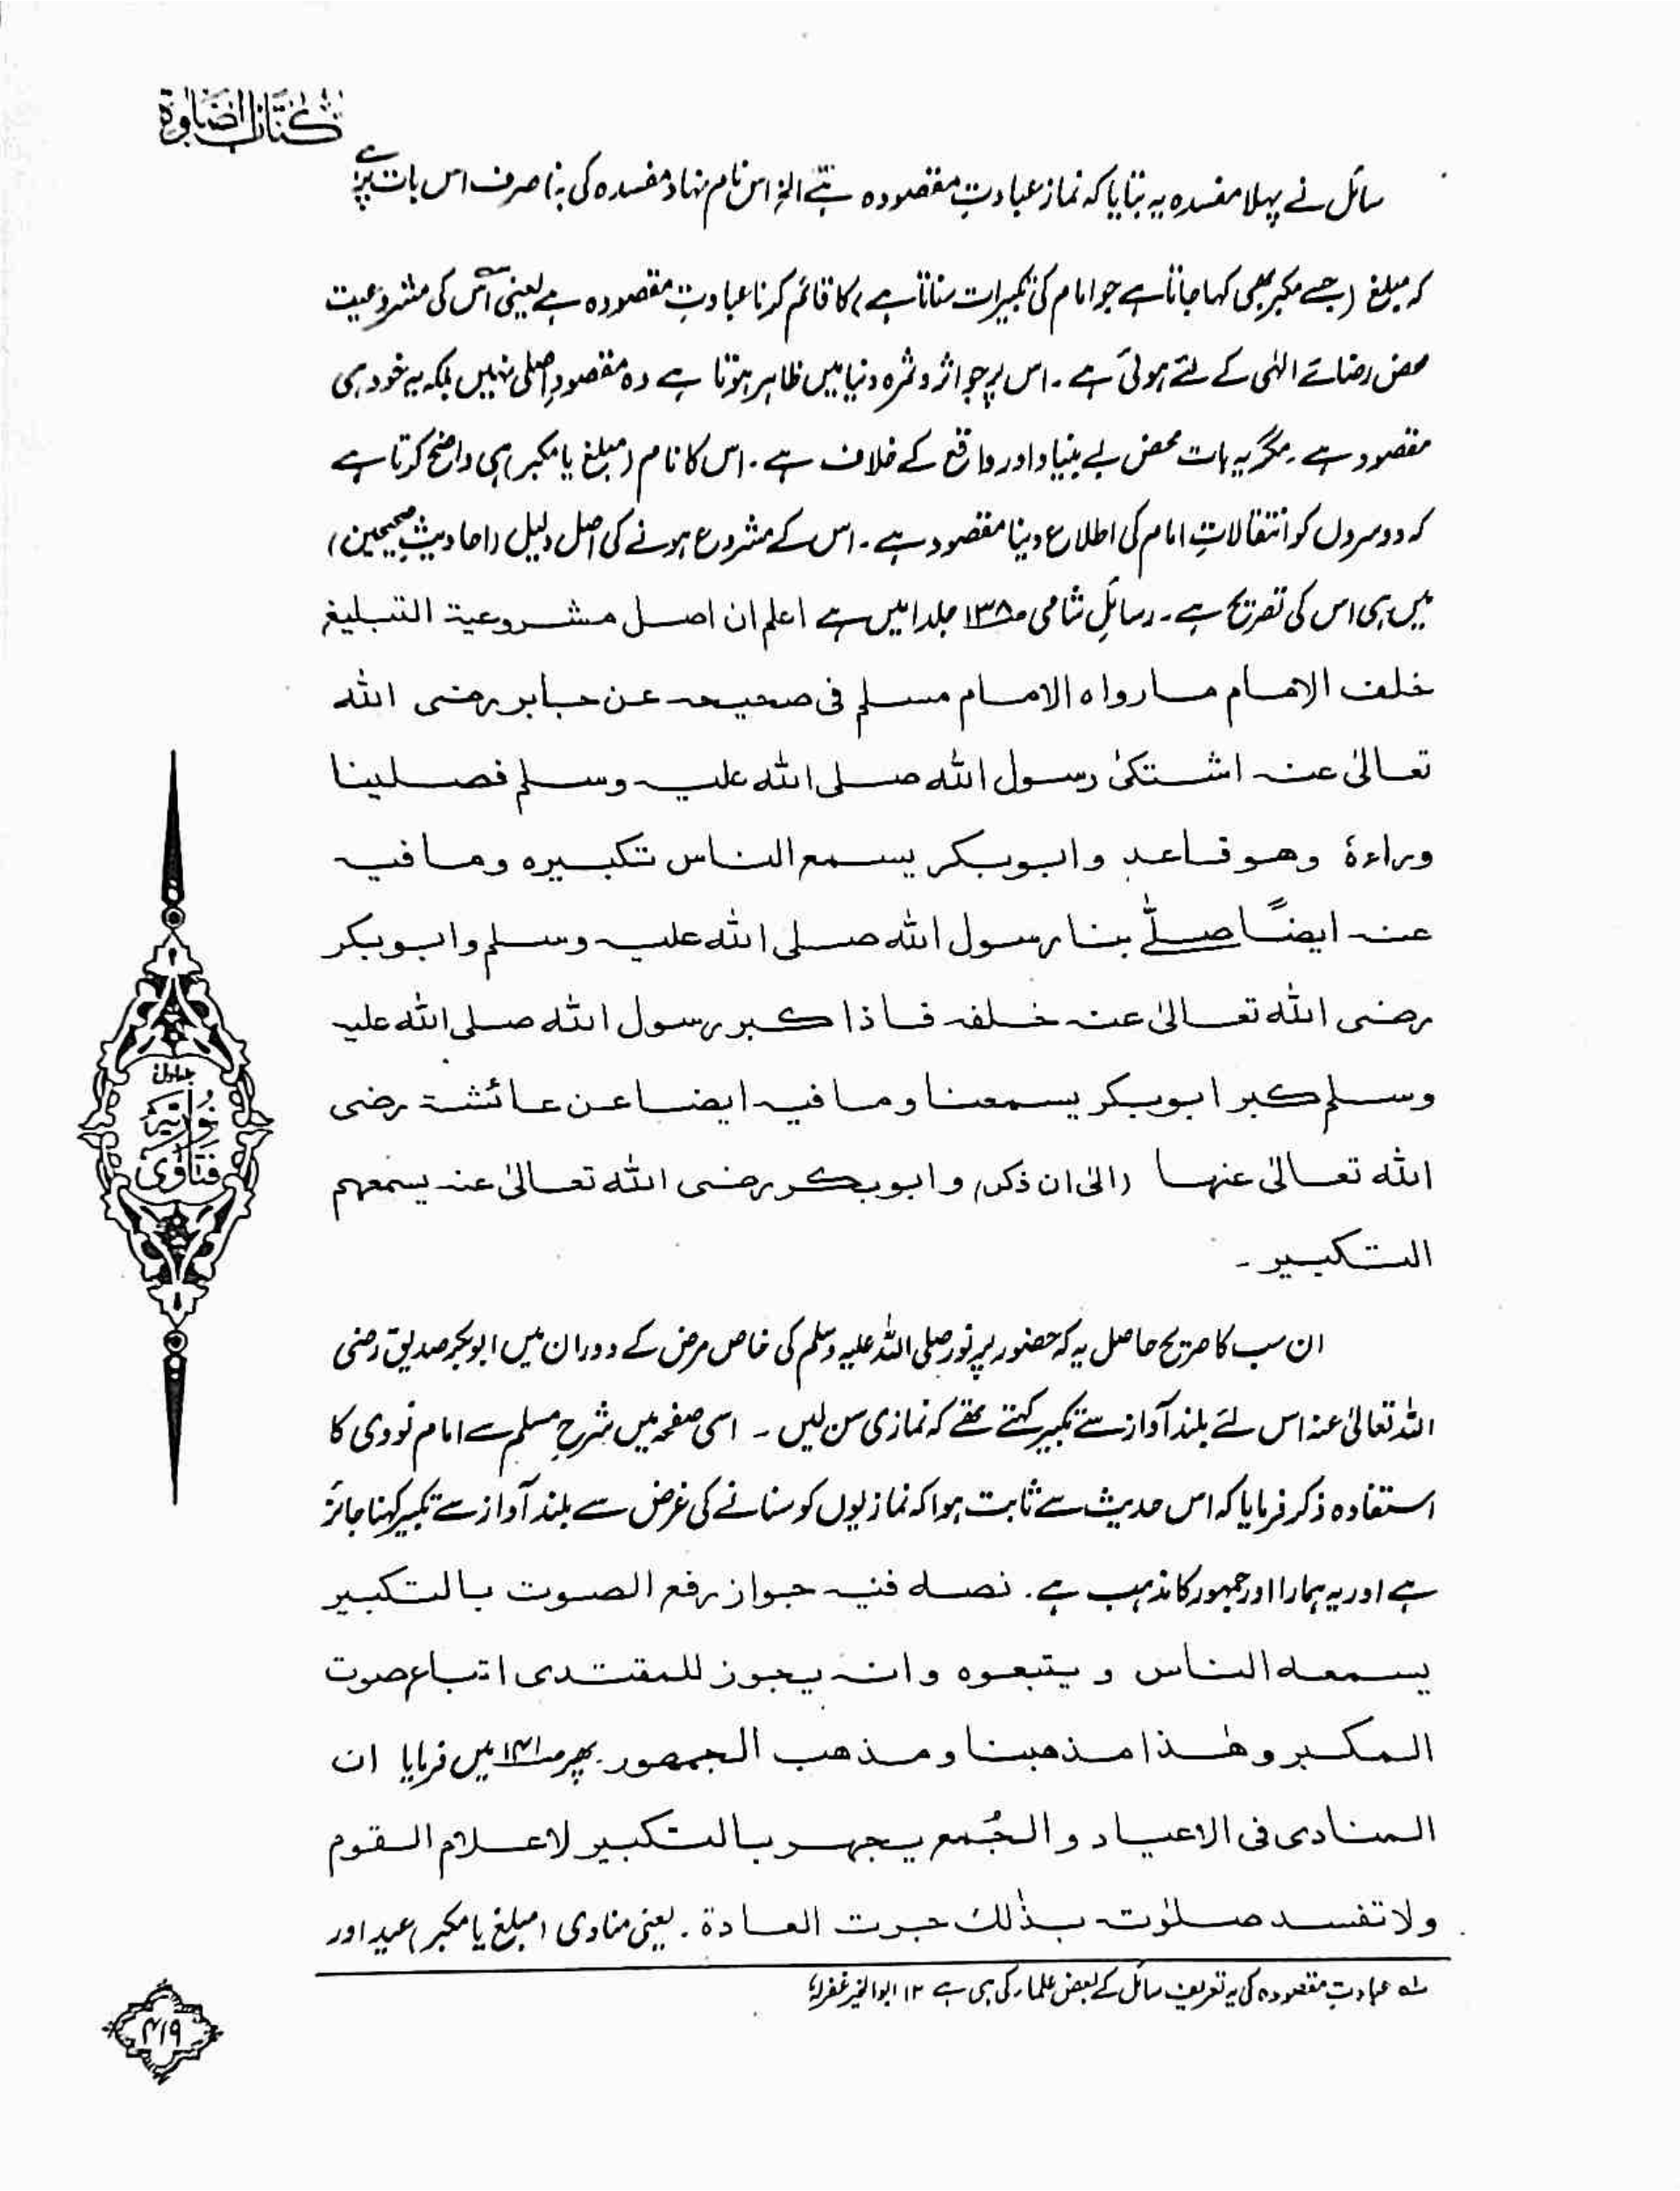 كتاب الصلوة
سائل نے پہلا مفسدہ یہ بتایا کہ نماز عبادتِ مقصودہ ہے الخ اس نام نہاد مفسدہ کی بنا صرف اس بات پر ہے
کہ مبلغ (جسے مکبر بھی کہا جاتا ہے جو امام کی تکبیرات سناتا ہے) کا قائم کرنا عبادتِ مقصودہ ہے یعنی اس کی مشروعیت
محض رضائے الٰہی کے لئے ہوئی ہے۔ اس پر جو اثر و ثمرہ دنیا میں ظاہر ہوتا ہے وہ مقصودِ اصلی نہیں بلکہ یہ خود ہی
مقصود ہے۔ مگر یہ بات محض بے بنیاد اور واقع کے خلاف ہے۔ اس کا نام (مبلغ یا مکبر) ہی واضح کرتا ہے
کہ دوسروں کو انتقالاتِ امام کی اطلاع دینا مقصود ہے۔ اس کے مشروع ہونے کی اصل دلیل (احادیثِ صحیحین)
میں ہی اس کی تصریح ہے۔ رسائلِ شامی ص۱۳۸ جلد ۱ میں ہے اعلم ان اصل مشروعية التبليغ
خلف الامام ما رواه الامام مسلم فى صحيحه عن جابر رضى الله
تعالىٰ عنه اشتكىٰ رسول الله صلى الله عليه وسلم فصلينا
وراءهٗ وهو قاعد وابوبكر يسمع الناس تكبيره وما فيه
عنه ايضًا صلّٰى بنا رسول الله صلى الله عليه وسلم وابوبكر
رضى الله تعالىٰ عنه خلفه فاذا كبر رسول الله صلى الله عليه
وسلم كبر ابوبكر يسمعنا وما فيه ايضا عن عائشة رضى
الله تعالىٰ عنها (الىٰ ان ذكر) وابوبكر رضى الله تعالىٰ عنه يسمعهم
التكبير۔
ان سب کا صریح حاصل یہ کہ حضور پر نور صلی اللہ علیہ وسلم کی خاص مرض کے دوران میں ابوبکر صدیق رضی
اللہ تعالیٰ عنہ اس لئے بلند آواز سے تکبیر کہتے تھے کہ نمازی سن لیں۔ اسی صفحہ میں شرحِ مسلم سے امام نووی کا
استفادہ ذکر فرمایا کہ اس حدیث سے ثابت ہوا کہ نمازیوں کو سنانے کی غرض سے بلند آواز سے تکبیر کہنا جائز
ہے اور یہ ہمارا اور جمہور کا مذہب ہے۔ نصه فيه جواز رفع الصوت بالتكبير
يسمعه الناس ويتبعوه وانه يجوز للمقتدى اتباع صوت
المكبر وهٰذا مذهبنا ومذهب الجمهور۔ پھر ص۱۴۱ میں فرمایا ان
المنادى فى الاعياد والجُمع يجهر بالتكبير لاعلام القوم
ولا تفسد صلوٰته بذٰلك جرت العادة۔ یعنی منادی (مبلغ یا مکبر) عید اور
لہ عبادتِ مقصودہ کی یہ تعریف سائل کے بعض علماء کی ہی ہے ۱۲ ابوالخیر غفرلہٗ
جلد اول
فتاوٰی نوریہ
۴۱۹